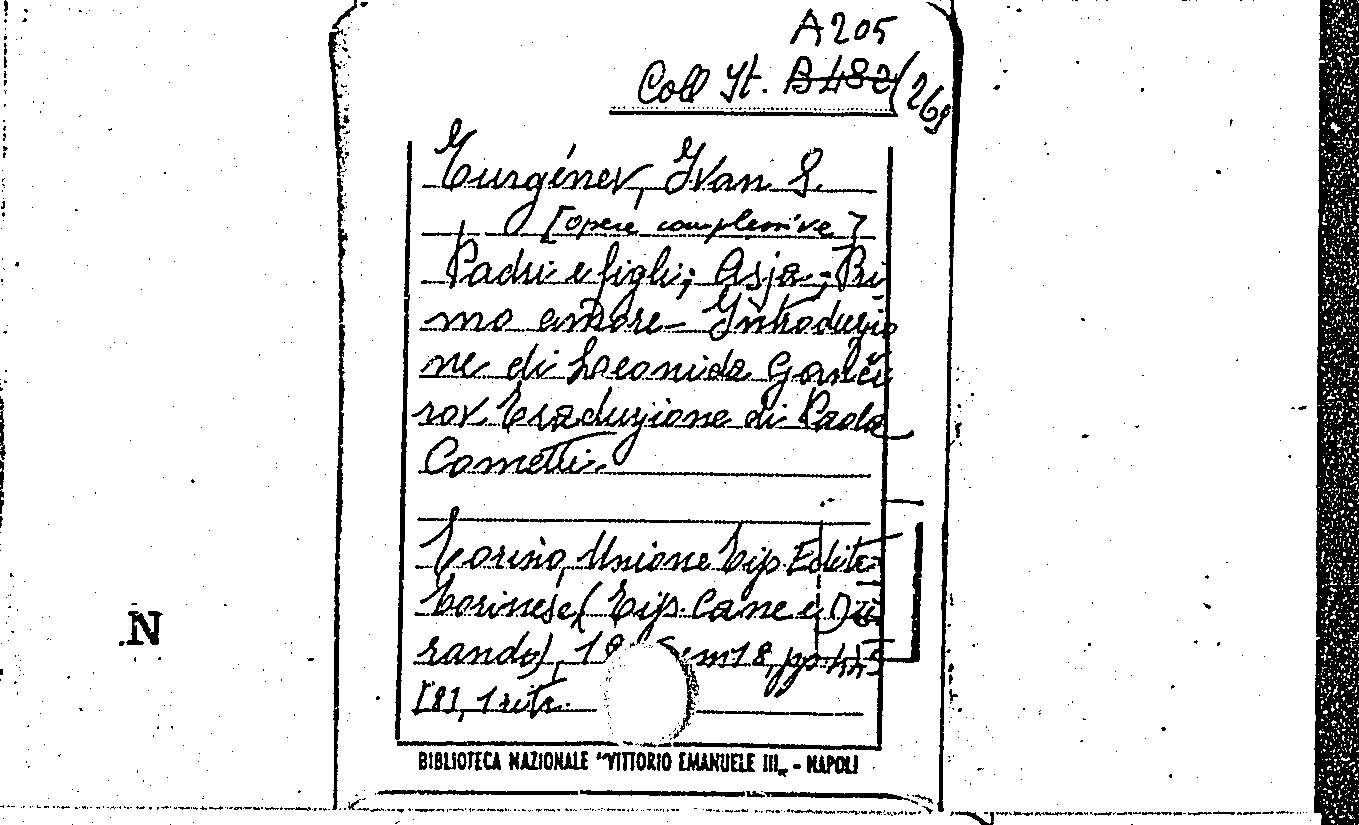 A 205
Coll It. B 482 (269
Turgénev, Ivan S.
[opere complessive]
Padri e figli; Asja; Pri
mo amore - Introduzio
ne di Leonida Ganči
rov. Traduzione di Paola
Cometti.
Torino, Unione Tip. Edit.
Torinese (Tip. Cane e Du
rando), 19 cm 18, pp. 445
[8], 1 ritr.
N
BIBLIOTECA NAZIONALE "VITTORIO EMANUELE III" - NAPOLI